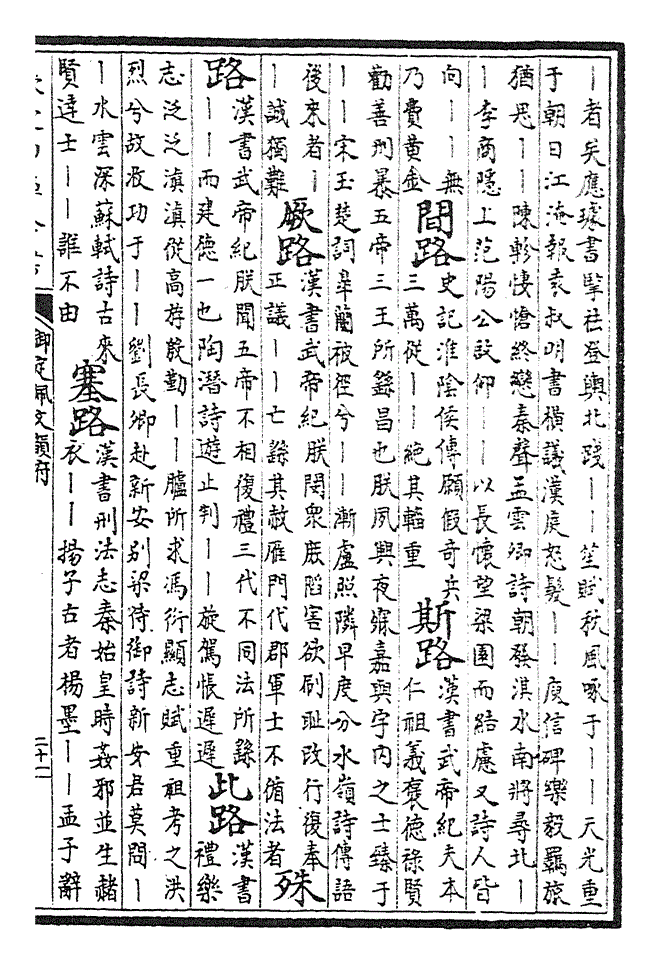 ｜者矣應璩書擥袪登輿北踐｜｜笙賦秋風啄于｜｜天光重
于朝日江淹報袁叔明書橫議漢庭怒髮｜｜庾信碑樂毅羈旅
猶思｜｜陳軫悽愴終戀秦聲孟雲卿詩朝發淇水南將尋北｜
｜李商隱上范陽公啟仰｜｜以長懷望梁園而結慮又詩人皆
向｜｜無
乃費黄金
間路
史記淮陰侯傳願假奇兵
三萬從｜｜絕其輜重
斯路
漢書武帝紀夫本
仁祖義褒德祿賢
勸善刑暴五帝三王所繇昌也朕夙興夜寐嘉與宇内之士臻于
｜｜宋玉楚詞皐蘭被徑兮｜｜漸盧照隣早度分水嶺詩傳語
後來者｜
｜誠獨難
厥路
漢書武帝紀朕閔衆庶陷害欲刷恥改行復奉
正議｜｜亡繇其赦雁門代郡軍士不循法者
殊
路
漢書武帝紀朕聞五帝不相復禮三代不同法所繇
｜｜而建德一也陶潛詩遊止判｜｜旋駕悵遲遲
此路
漢書
禮樂
志泛泛滇滇從高斿殷勤｜｜臚所求馮衍顯志賦重祖考之洪
烈兮故收功于｜｜劉長卿赴新安别梁侍御詩新安君莫問｜
｜水雲深蘇軾詩古來
賢達士｜｜誰不由
塞路
漢書刑法志秦始皇時姦邪並生赭
衣｜｜揚子古者楊墨｜｜孟子辭
御定佩文韻府